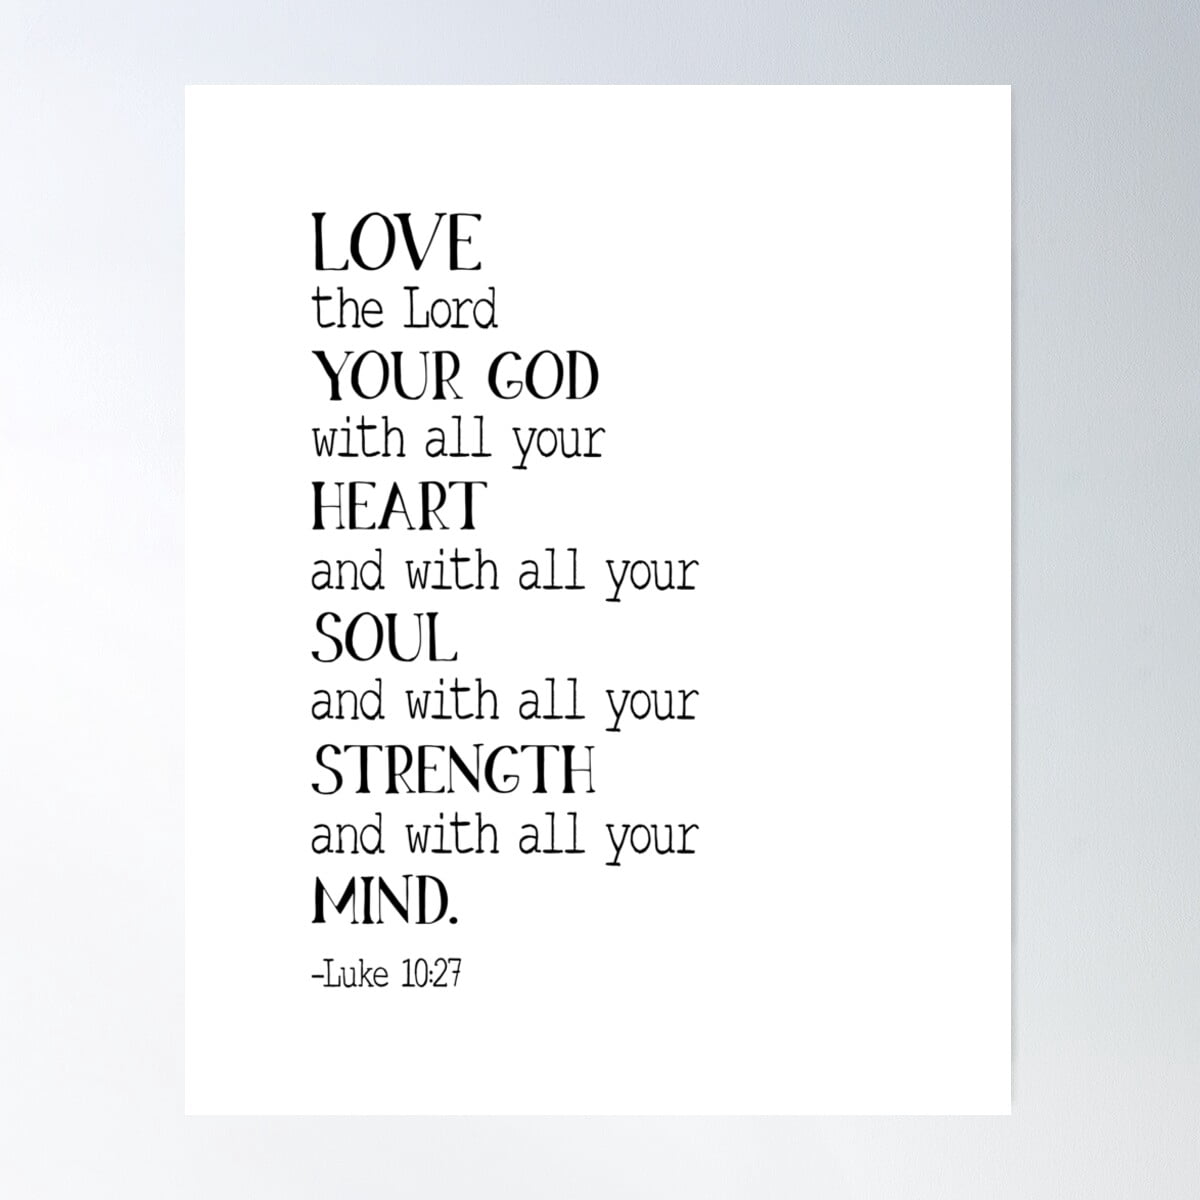 LOVE
the Lord
YOUR GOD
with all your
HEART
and with all your
SOUL
and with all your
STRENGTH
and with all your
MIND.
-Luke 10:27